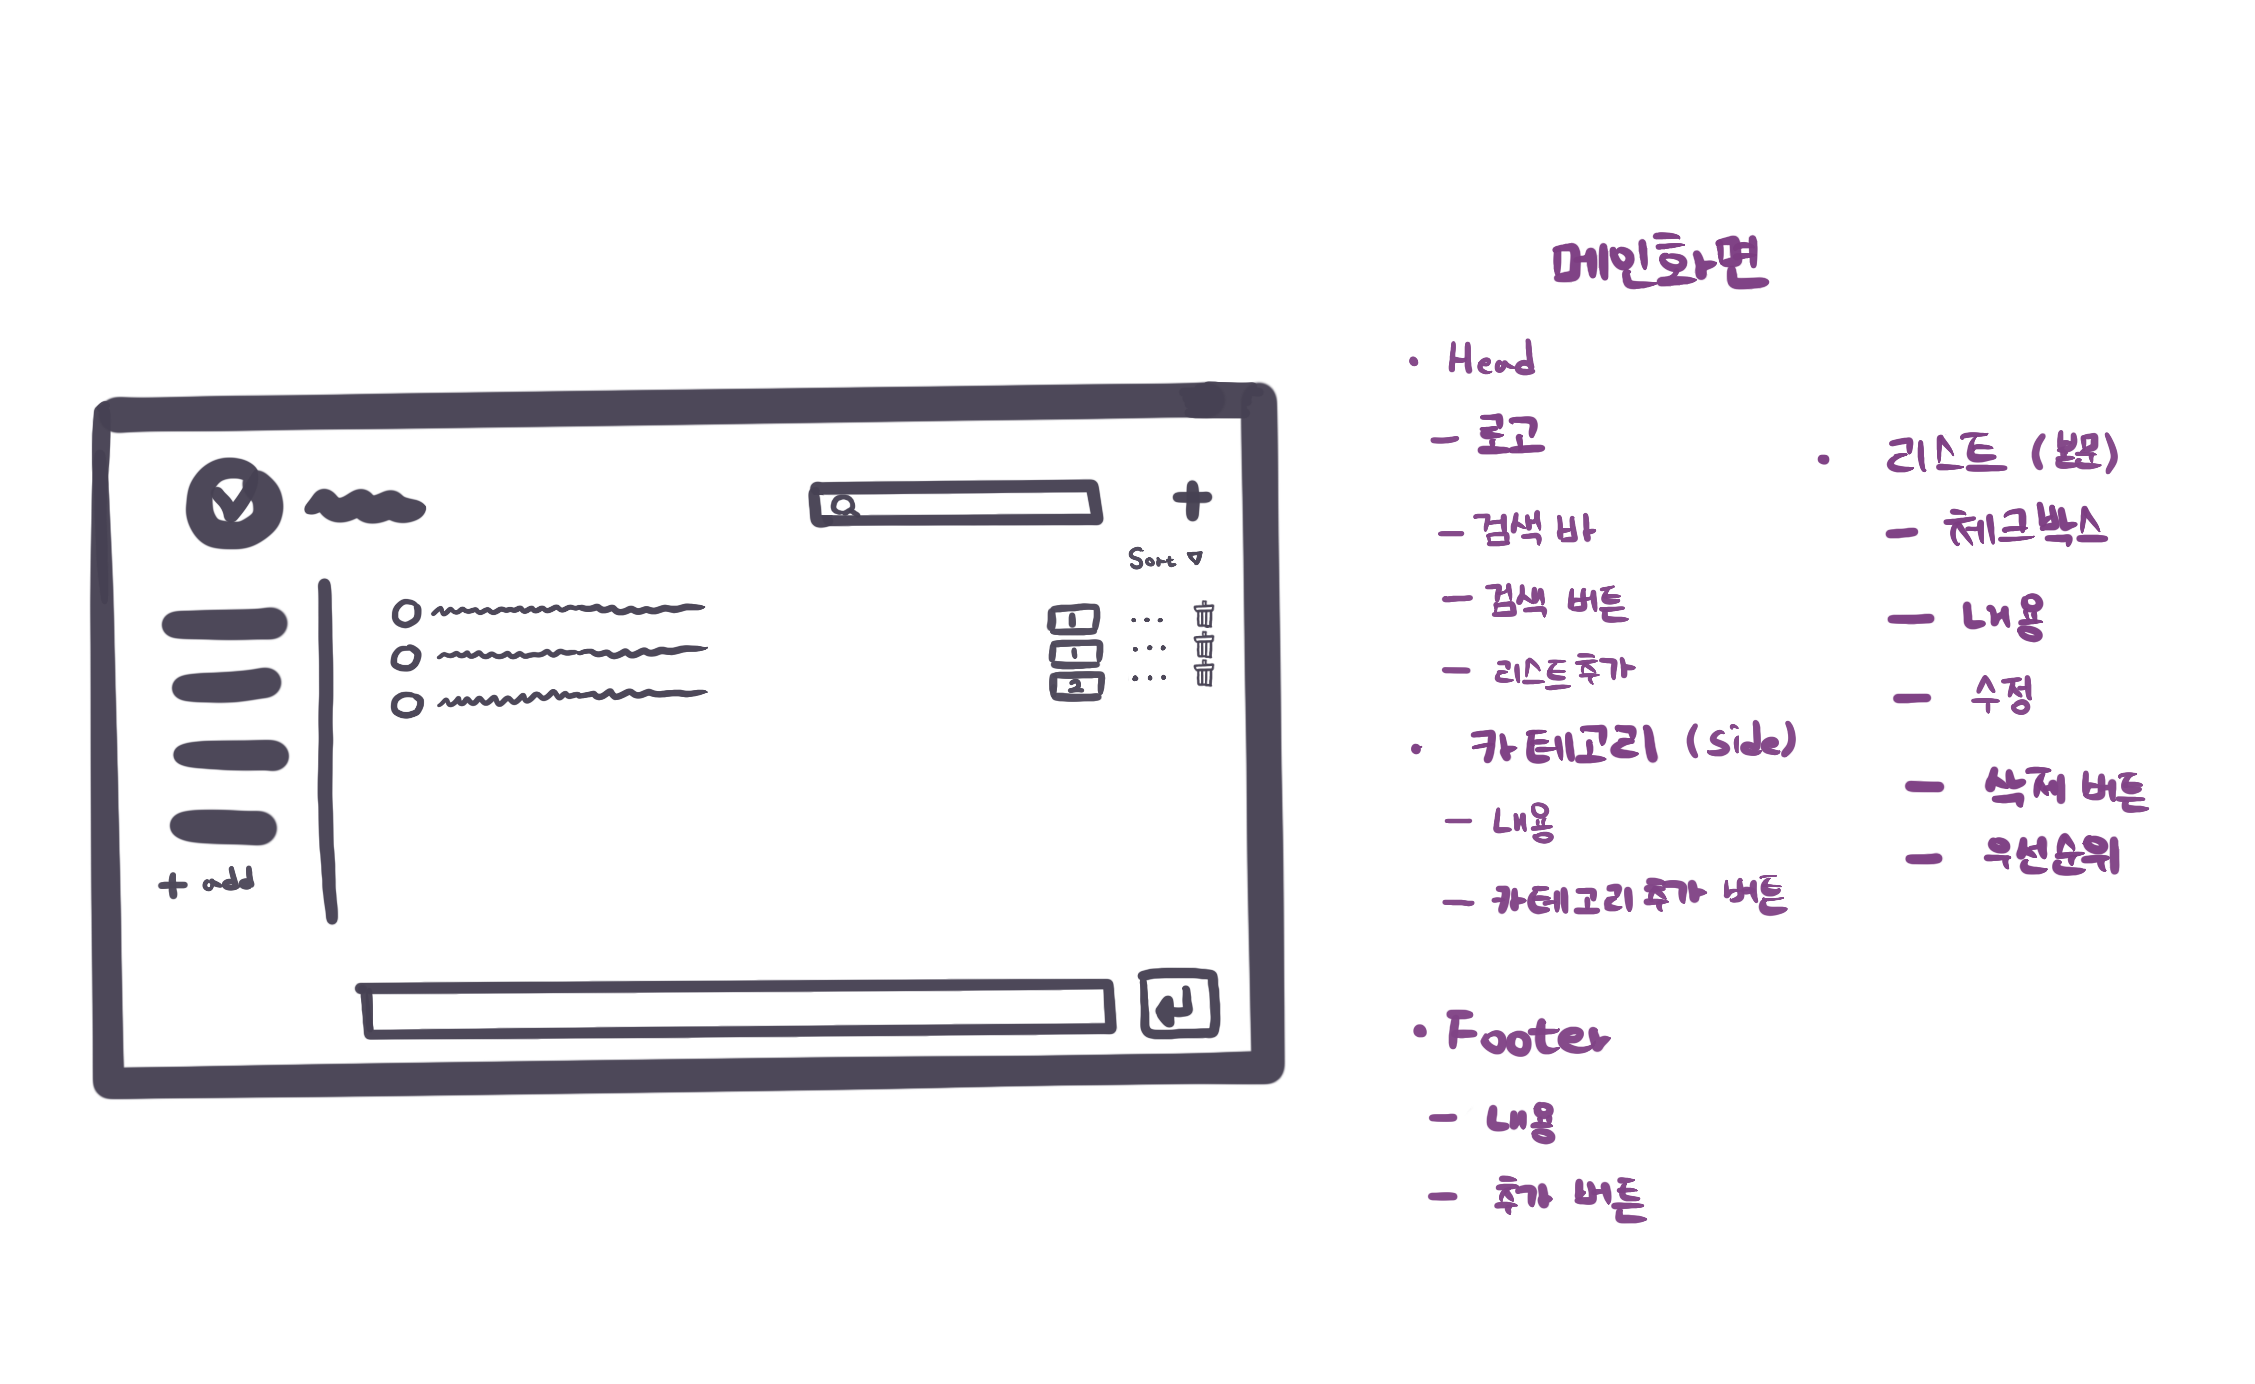 Sort ▽
1
1
2
+ add
메인화면
• Head
- 로고
- 검색 바
- 검색 버튼
- 리스트 추가
• 카테고리 (side)
- 내용
- 카테고리 추가 버튼
• Footer
- 내용
- 추가 버튼
• 리스트 (본문)
- 체크박스
- 내용
- 수정
- 삭제 버튼
- 우선순위